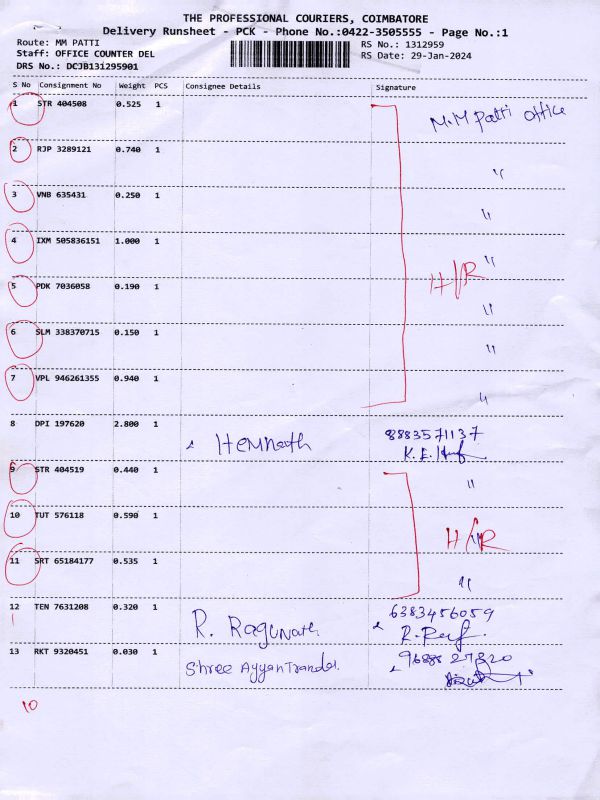 THE PROFESSIONAL COURIERS, COIMBATORE
Delivery Runsheet - PCK - Phone No.:0422-3505555 - Page No.:1
Route: MM PATTI
Staff: OFFICE COUNTER DEL
DRS No.: DCJB131295901
RS No.: 1312959
RS Date: 29-Jan-2024
S No Consignment No Weight PCS Consignee Details Signature
1 STR 404508 0.525 1 M.M Patti Office
2 RJP 3289121 0.740 1 "
3 VNB 635431 0.250 1 "
4 IXM 505836151 1.000 1 "
H/R
5 PDK 7036058 0.190 1 "
6 SLM 338370715 0.150 1 "
7 VPL 946261355 0.940 1 "
8 DPI 197620 2.800 1 Hemnath 8883571137
K.E.
9 STR 404519 0.440 1 "
10 TUT 576118 0.590 1 "
H/R
11 SRT 65184177 0.535 1 "
12 TEN 7631208 0.320 1 R. Ragunath 6383456059
13 RKT 9320451 0.030 1 Shree Ayyan
10